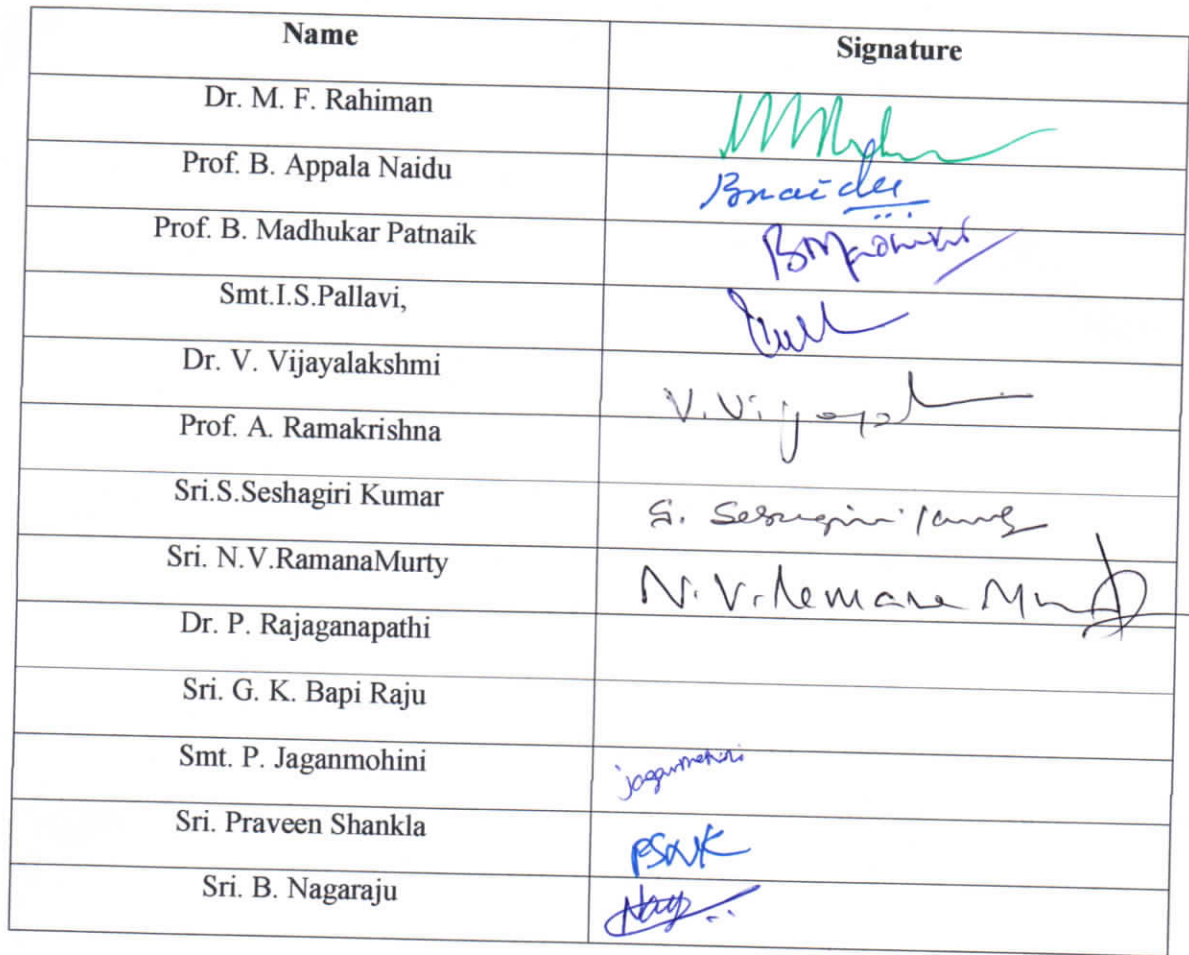 Name Signature
Dr. M. F. Rahiman
Prof. B. Appala Naidu Bnaidu
Prof. B. Madhukar Patnaik
Smt.I.S.Pallavi,
Dr. V. Vijayalakshmi
Prof. A. Ramakrishna
Sri.S.Seshagiri Kumar
Sri. N.V.RamanaMurty
Dr. P. Rajaganapathi
Sri. G. K. Bapi Raju
Smt. P. Jaganmohini jaganmohini
Sri. Praveen Shankla
Sri. B. Nagaraju